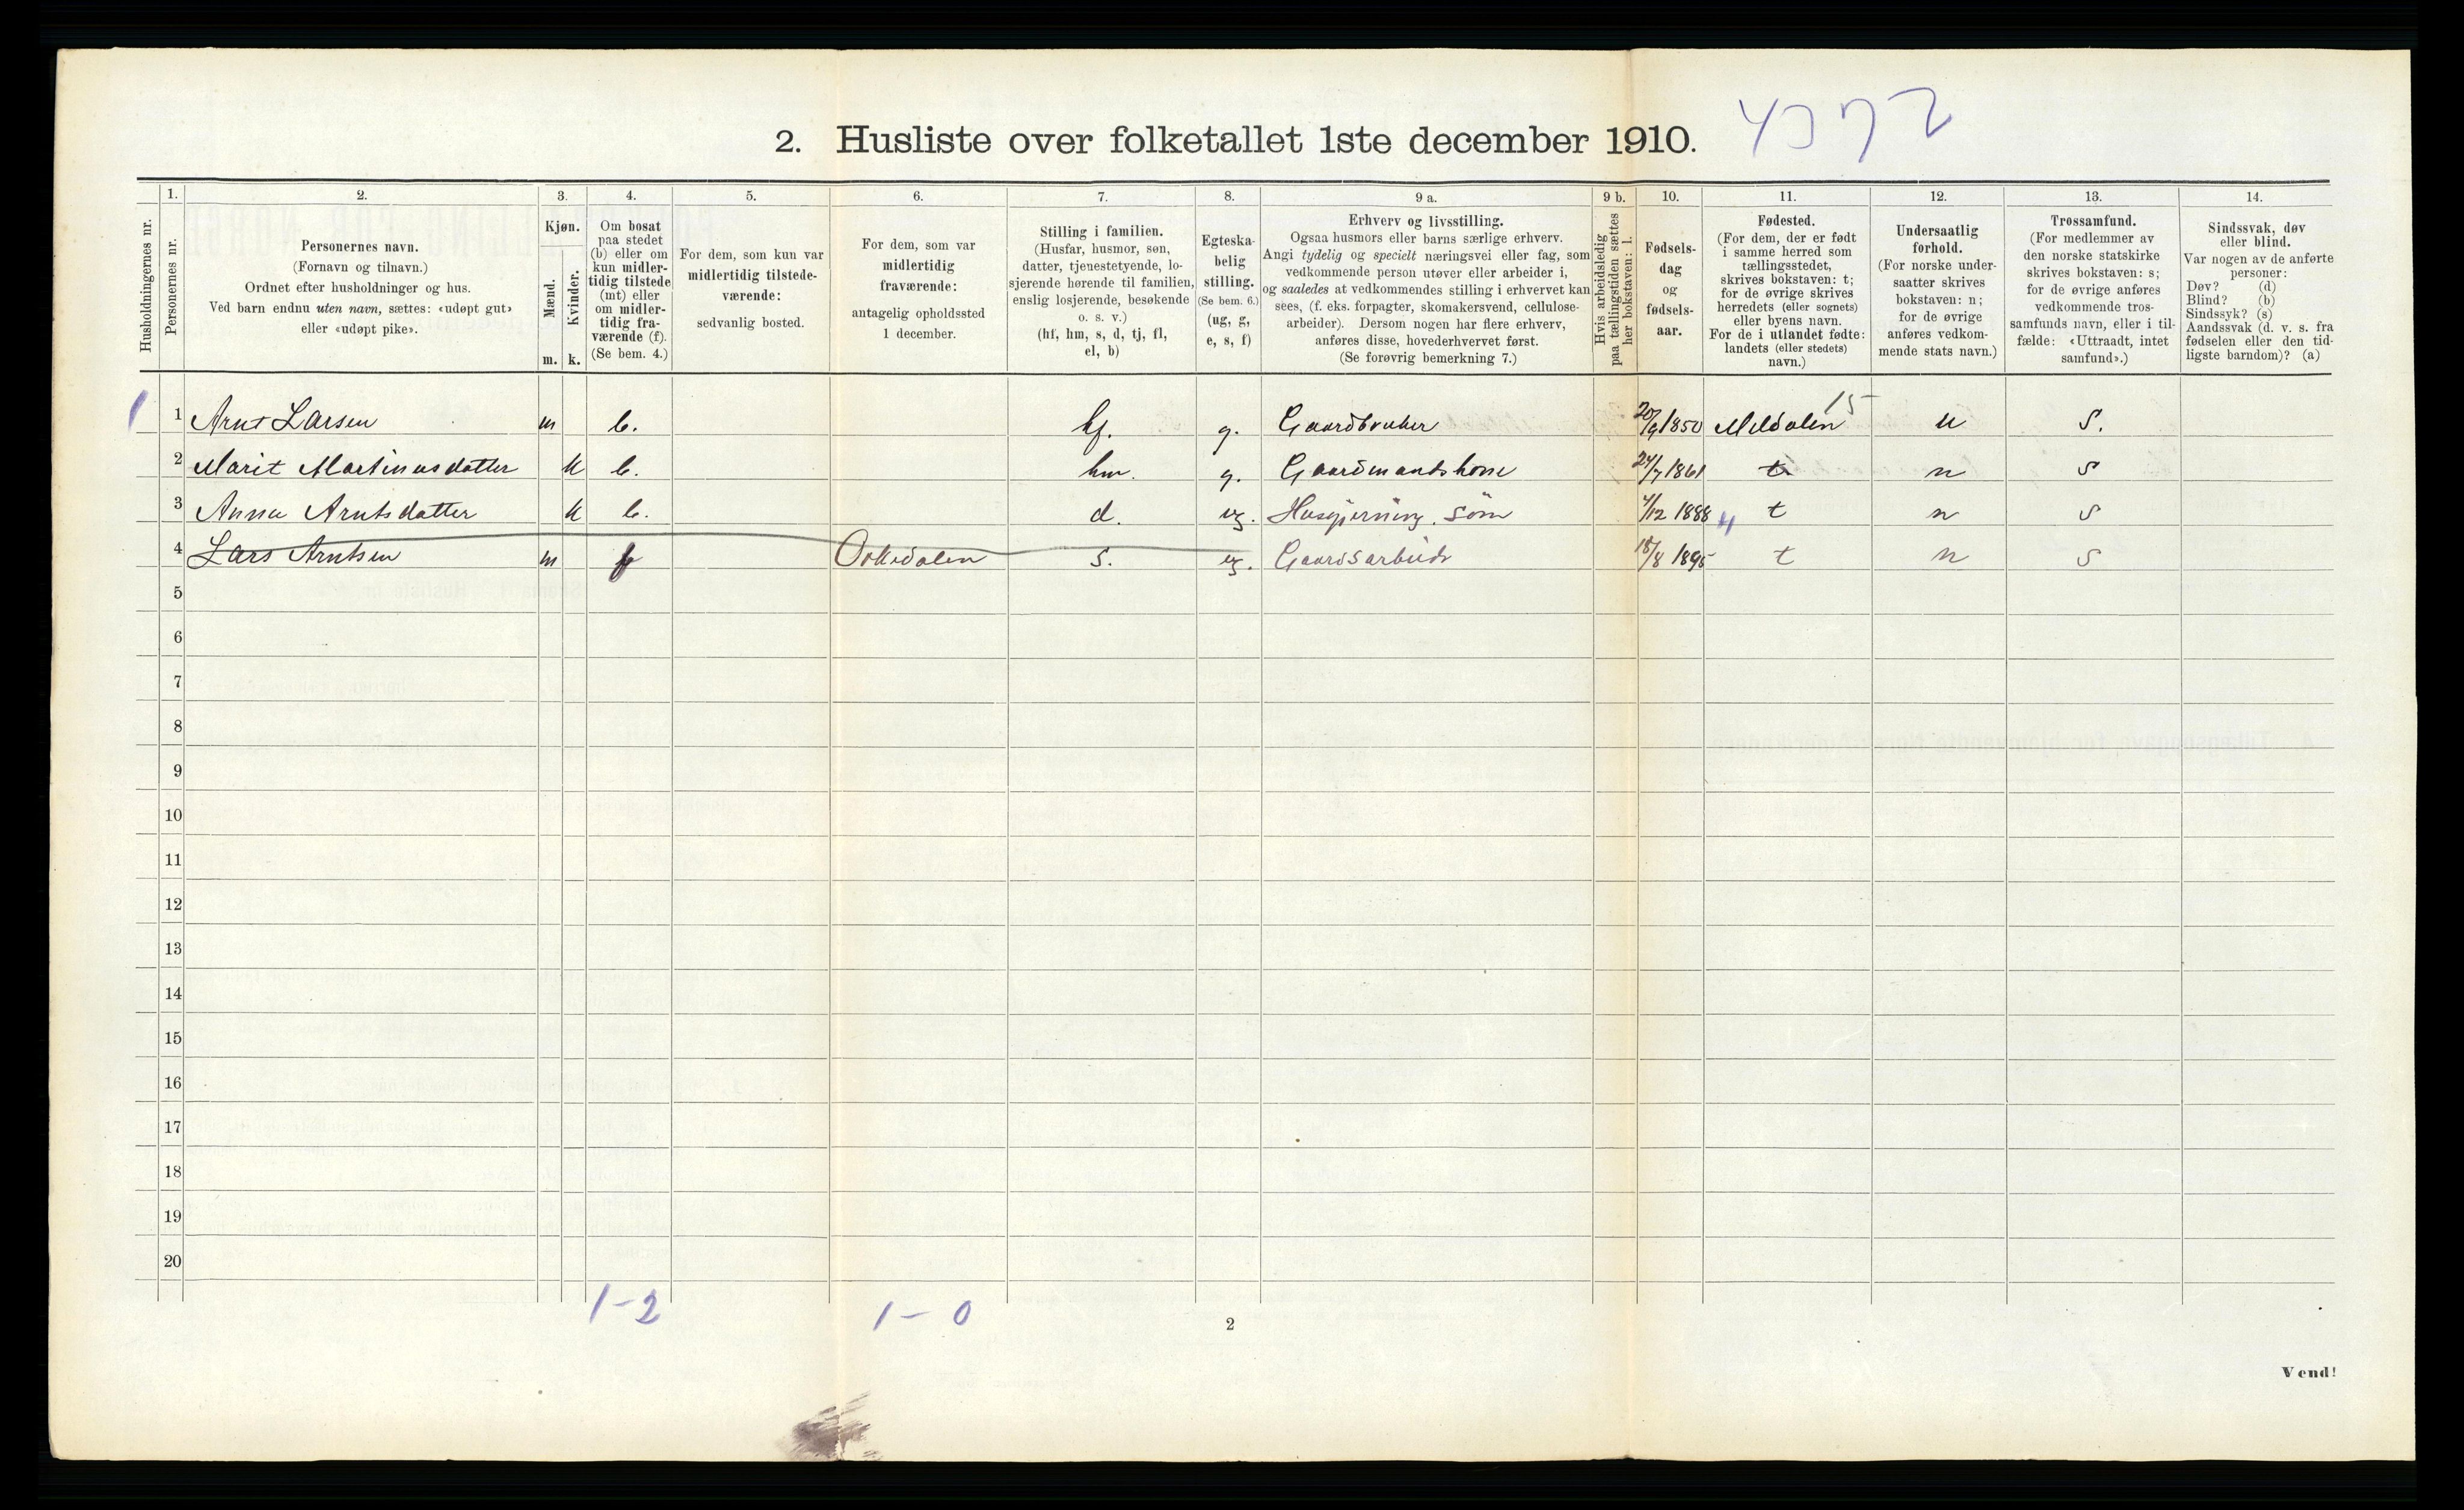 2. Husliste over folketallet 1ste december 1910.
Husholdningernes nr.
1.
Personernes nr.
2.
Personernes navn.
(Fornavn og tilnavn.)
Ordnet efter husholdninger og hus.
Ved barn endnu uten navn, sættes: «udøpt gut»
eller «udøpt pike».
3.
Kjøn.
Mænd.
Kvinder.
m. k.
4.
Om bosat
paa stedet
(b) eller om
kun midler-
tidig tilstede
(mt) eller
om midler-
tidig fra-
værende (f).
(Se bem. 4.)
5.
For dem, som kun var
midlertidig tilstede-
værende:
sedvanlig bosted.
6.
For dem, som var
midlertidig
fraværende:
antagelig opholdssted
1 december.
7.
Stilling i familien.
(Husfar, husmor, søn,
datter, tjenestetyende, lo-
sjerende hørende til familien,
enslig losjerende, besøkende
o. s. v.)
(hf, hm, s, d, tj, fl,
el, b)
8.
Egteska-
belig
stilling.
(Se bem. 6.)
(ug, g,
e, s, f)
9 a.
Erhverv og livsstilling.
Ogsaa husmors eller barns særlige erhverv.
Angi tydelig og specielt næringsvei eller fag, som
vedkommende person utøver eller arbeider i,
og saaledes at vedkommendes stilling i erhvervet kan
sees, (f. eks. forpagter, skomakersvend, cellulose-
arbeider). Dersom nogen har flere erhverv,
anføres disse, hovederhvervet først.
(Se forøvrig bemerkning 7.)
9 b.
Hvis arbeidsledig
paa tællingstiden sættes
her bokstaven: l.
10.
Fødsels-
dag
og
fødsels-
aar.
11.
Fødested.
(For dem, der er født
i samme herred som
tællingsstedet,
skrives bokstaven: t;
for de øvrige skrives
herredets (eller sognets)
eller byens navn.
For de i utlandet fødte:
landets (eller stedets)
navn.)
12.
Undersaatlig
forhold.
(For norske under-
saatter skrives
bokstaven: n;
for de øvrige
anføres vedkom-
mende stats navn.)
13.
Trossamfund.
(For medlemmer av
den norske statskirke
skrives bokstaven: s;
for de øvrige anføres
vedkommende tros-
samfunds navn, eller i til-
fælde: «Uttraadt, intet
samfund».)
14.
Sindssvak, døv
eller blind.
Var nogen av de anførte
personer:
Døv? (d)
Blind? (b)
Sindssyk? (s)
Aandssvak (d. v. s. fra
fødselen eller den tid-
ligste barndom)? (a)
15
1 1 Arnt Larsen m b. hf. g. Gaardbruker 20/9 1850 Meldalen n S.
2 Marit Martinusdatter k b. hm. g. Gaardmandskone 24/7 1861 t n S
3 Anna Arntsdatter k b. d. ug. Husgjerning. Søm 4/12 1888 t n S
4 Lars Arntsen m f Orkedalen s. ug. Gaardsarbeide 18/8 1895 t n S
5
6
7
8
9
10
11
12
13
14
15
16
17
18
19
20
1-2 1-0
2
Vend!